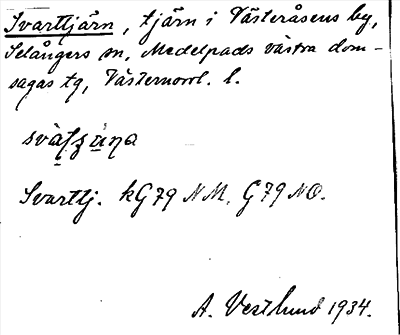 Svarttjärn, tjärn i Västeråsens by,
Selångers sn, Medelpads västra dom-
sagas tg, Västernorrl. l.
Svarttj. kG79 NM, G79 NO.
A. Vestlund 1934.